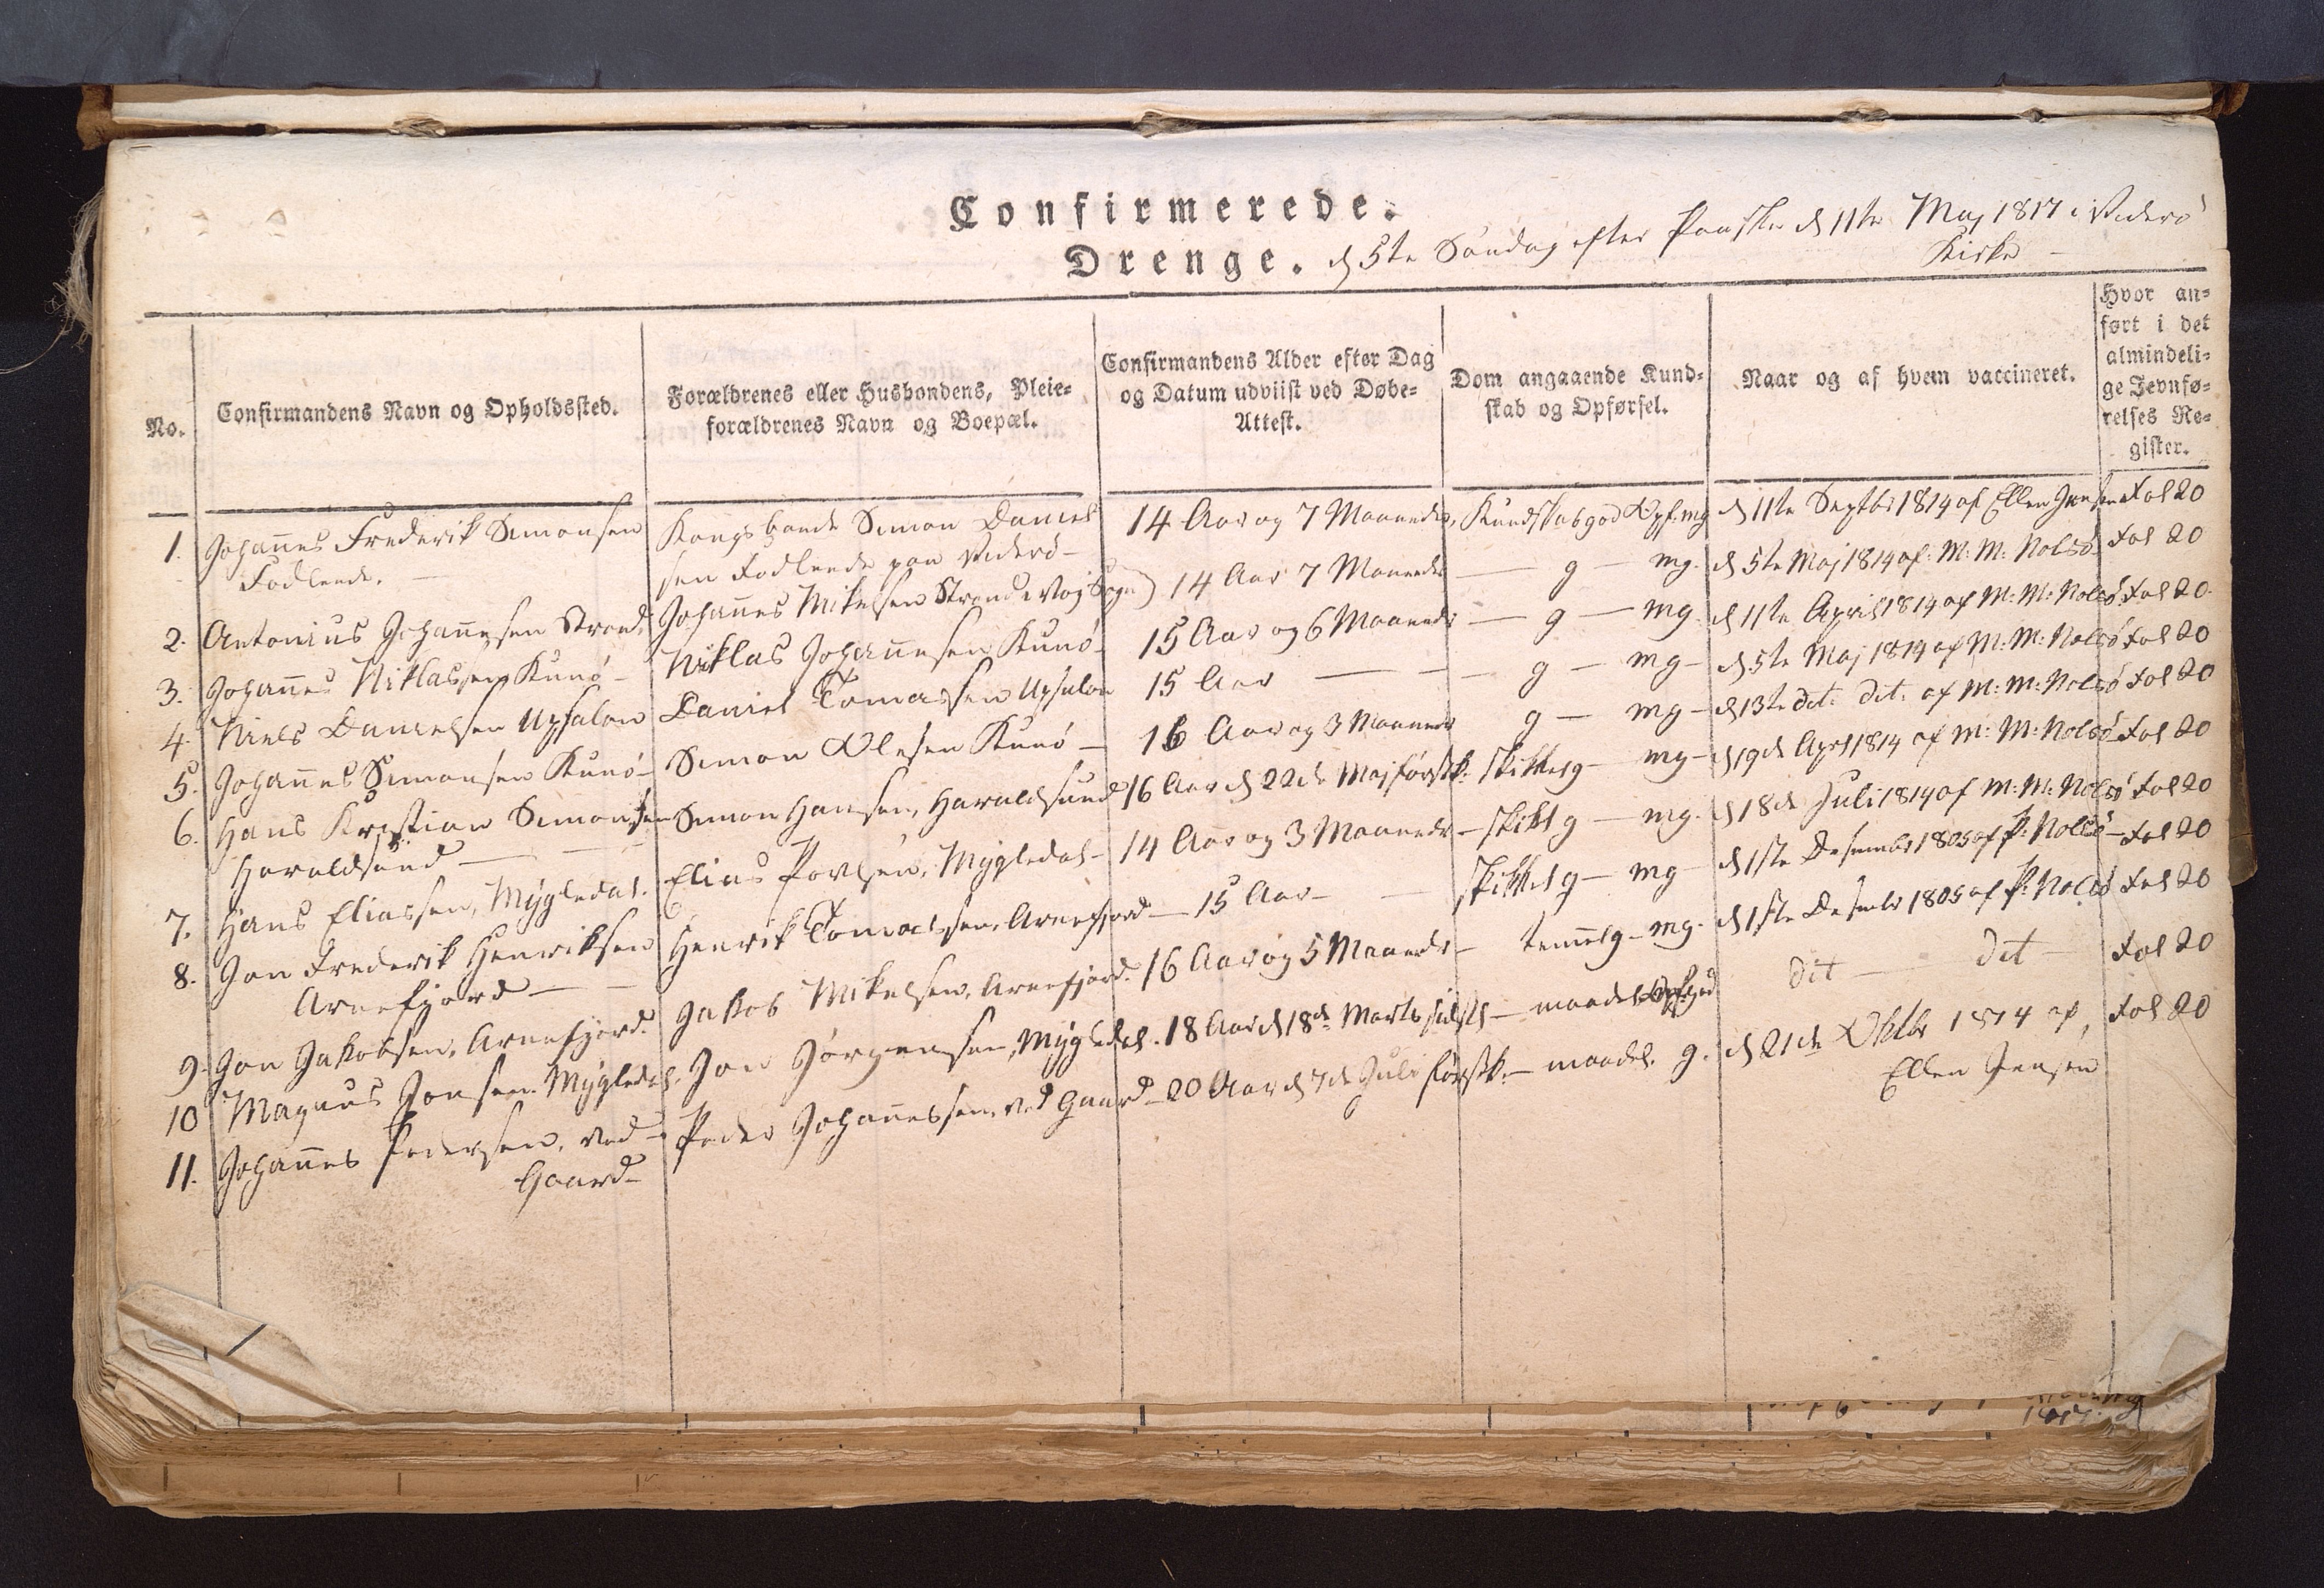 Confirmerede.
Drenge. d 5te Søndag efter Paaske d 11te Maj 1817 i Viderø
Kirke
No.
Confirmandens Navn og Opholdssted.
Forældrenes eller Husbondens, Pleie-
forældrenes Navn og Boepæl.
Confirmandens Alder efter Dag
og Datum udviist ved Døbe-
Attest.
Dom angaaende Kund-
skab og Opførsel.
Naar og af hvem vaccineret.
Hvor an-
ført i det
almindeli-
ge Jevnfø-
relses Re-
gister.
1. Johannes Frederik Simonsen Kongsbonde Simon Daniel 14 Aar og 7 Maaneder, Kundskab god Opf: mg d 11te Septbr 1814 af Ellen Jensen Fol 20
Fodlende. sen Fodlende paa Viderø
2. Antonius Johannesen Strand. Johannes Mikelsen Strand i Vaj Sogn) 14 Aar 7 Maaneder — g — mg. d 5te Maj 1814 af M: M: Nolsø Fol 20
3. Johannes Niklassen Kunø Niklas Johannesen Kunø 15 Aar og 6 Maaneder — g — mg. d 11te April 1814 af M: M: Nolsø Fol 20.
4. Niels Danielsen Upsalon Daniel Tomassen Upsalon 15 Aar — g — mg — d 5te Maj 1814 af M: M: Nolsø Fol 20
5. Johannes Simonsen Kunø Simon Olesen Kunø — 16 Aar og 3 Maaneder g — mg — d 13te dit: dit: af M: M: Nolsø Fol 20
6. Hans Kristian Simonsen Simon Hansen, Haraldsund 16 Aar d 22de Maj førstk: skikkel g — mg — d 19de Aprl 1814 af M: M: Nolsø Fol 20
Haraldsund —
7. Hans Eliassen, Mygledal. Elias Povlsen, Mygledal — 14 Aar og 3 Maaneder — skikl g — mg. d 18de Juli 1814 af M: M: Nolsø Fol 20
8. Jon Frederik Henriksen Henrik Tomassen, Arnefjord — 15 Aar — skikkel g — mg — d 1ste Desember 1805 af P: Nolsø Fol 20
Arnefjord —
9. Jon Jakobsen, Arnefjord. Jakob Mikelsen, Arnefjord. 16 Aar og 5 Maaneder — temel g — mg. d 1ste Desembr 1805 af P: Nolsø Fol 20
10 Magnus Jonsen Mygledal. Jon Jørgensen, Mygledal. 18 Aar d 18de Marts sidstl — maadel. Opf: god dit — dit — Fol 20
11. Johannes Pedersen, ved Peder Johannessen, ved Gaard — 20 Aar d 7de Juli førstk. — maadel. g. d 21de Oktbr 1814 af Fol 20
Gaard — Ellen Jensen